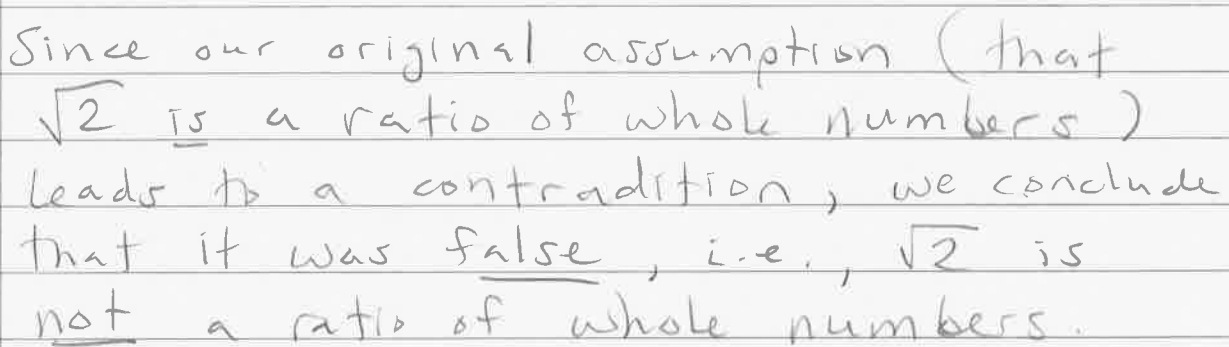 Since our original assumption (that
√2 is a ratio of whole numbers)
leads to a contradition, we conclude
that it was false, i.e., √2 is
not a ratio of whole numbers.